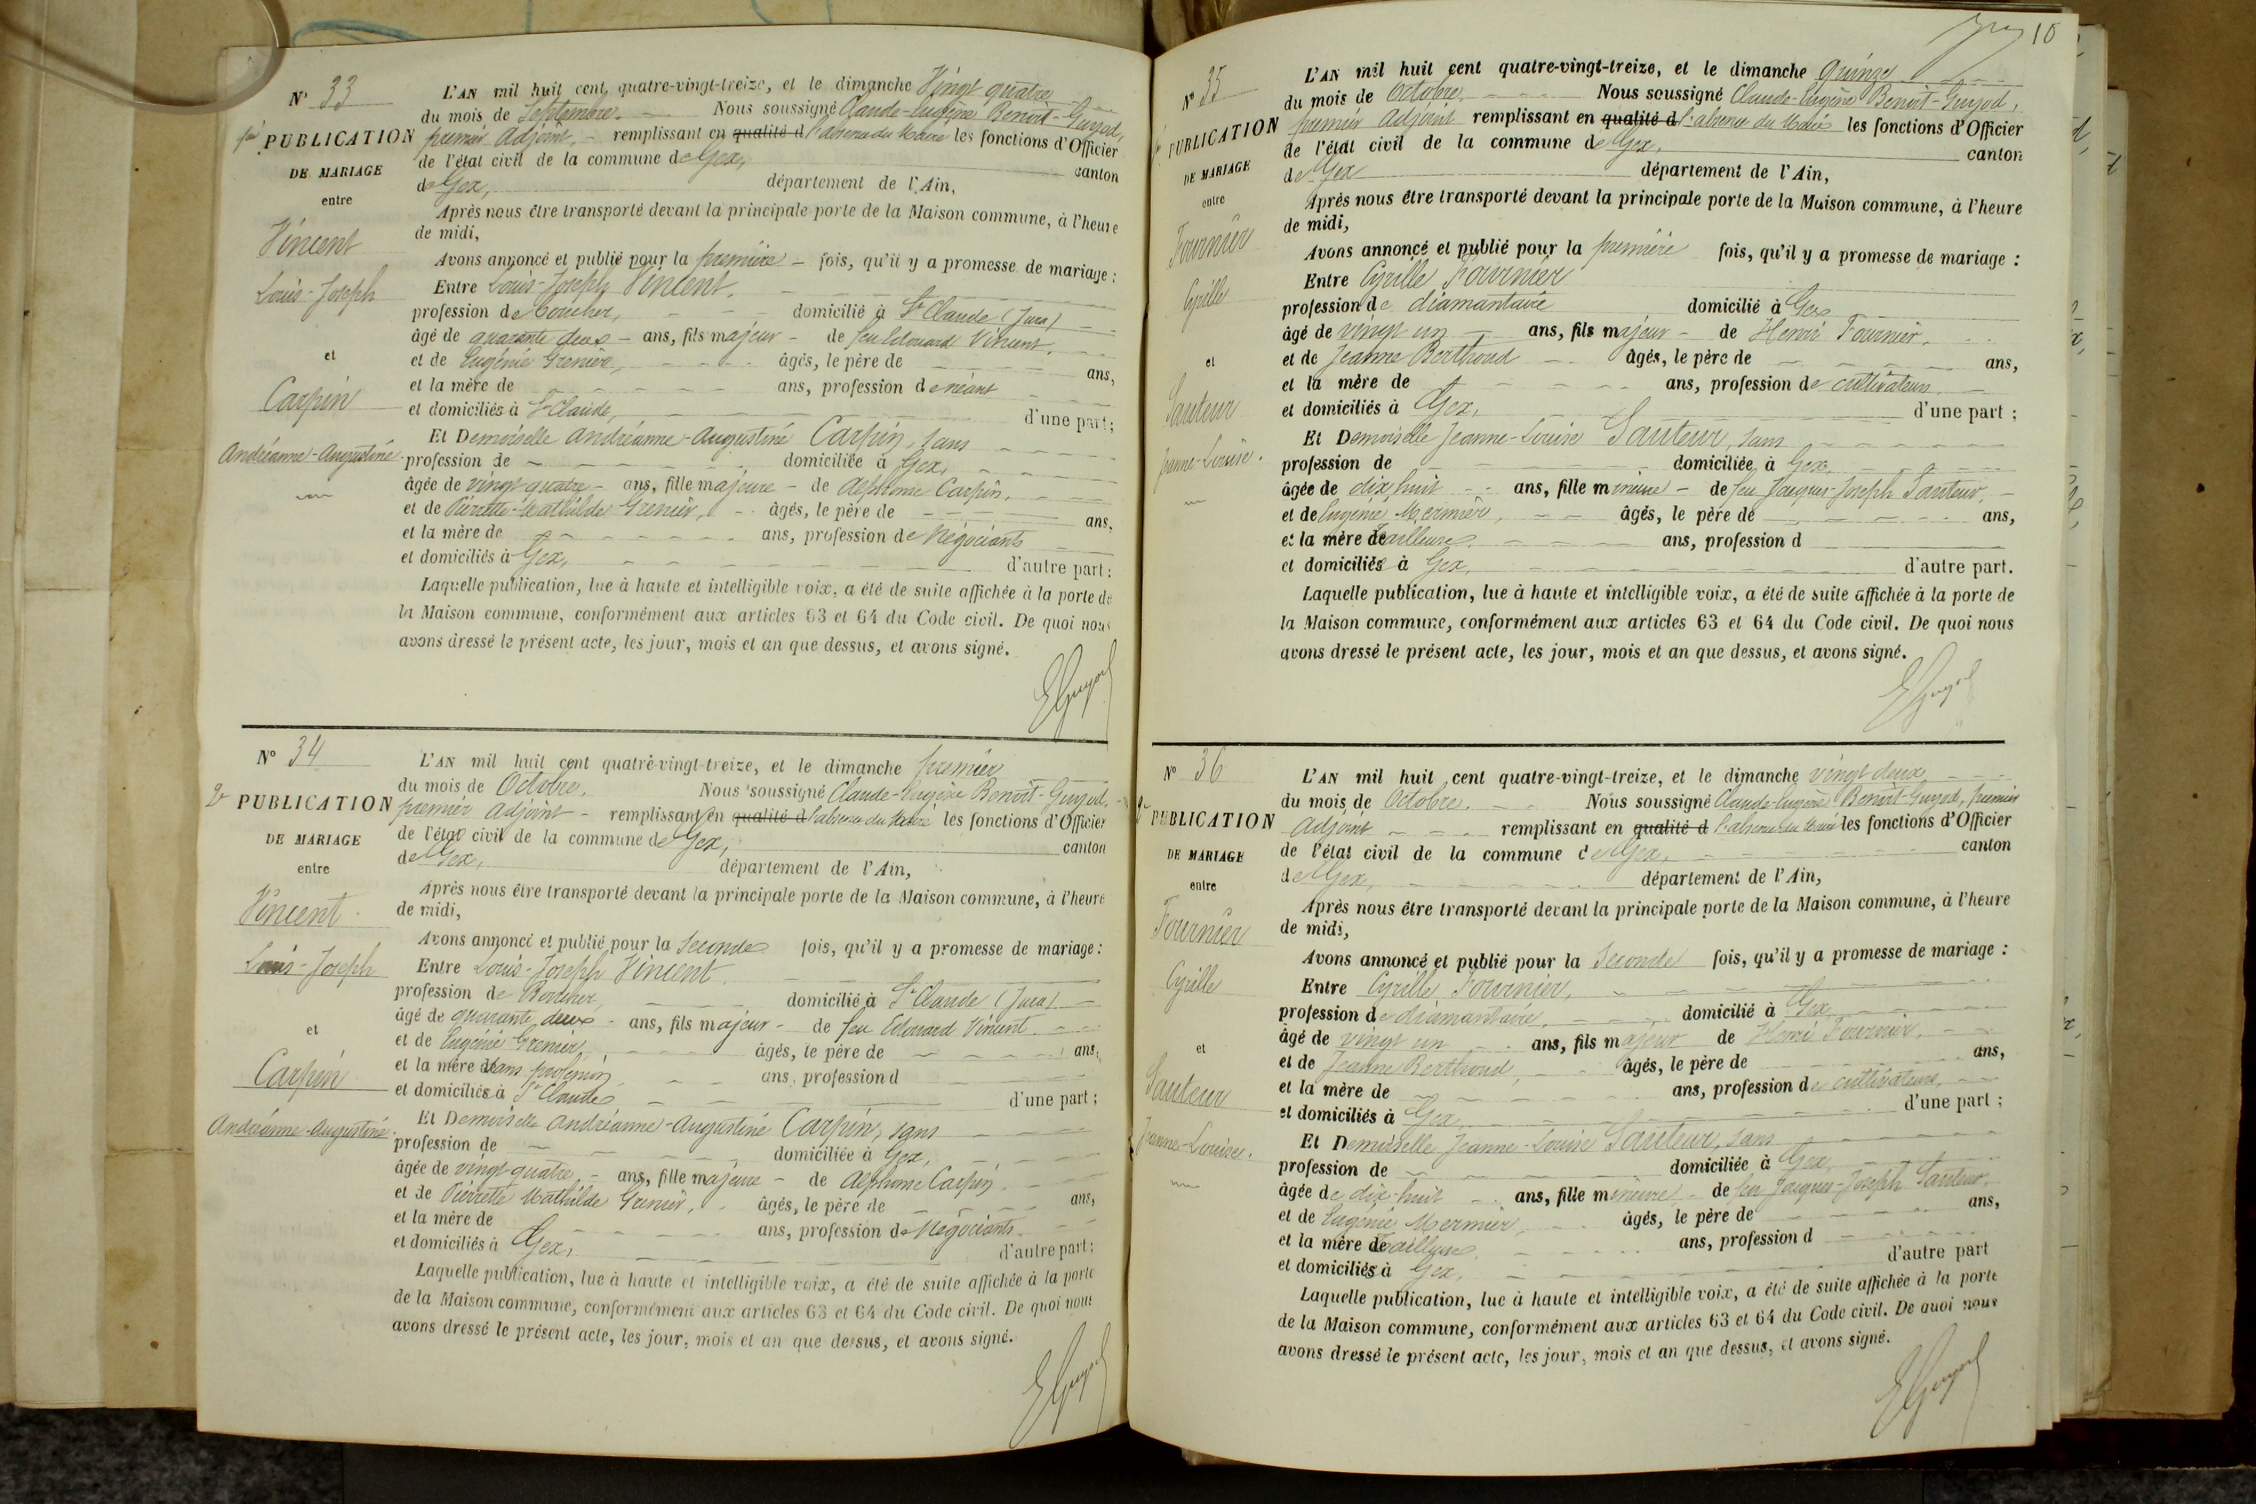 N° 33
1re PUBLICATION
DE MARIAGE
entre
Vincent
Louis-Joseph
et
Carpin
Andréanne-Augustine
L'AN mil huit cent quatre-vingt-treize, et le dimanche Vingt quatre
du mois de Septembre. Nous soussigné Claude-Eugène Benoit-Guyod,
premier adjoint - remplissant en qualité d l'absence du Maire les fonctions d'Officier
de l'état civil de la commune de Gex, canton
de Gex, département de l'Ain,
Après nous être transporté devant la principale porte de la Maison commune, à l'heure
de midi,
Avons annoncé et publié pour la première - fois, qu'il y a promesse de mariage :
Entre Louis-Joseph Vincent.
profession de Boucher, domicilié à St Claude (Jura)
âgé de quarante deux - ans, fils majeur - de feu Edouard Vincent,
et de Eugénie Grenier, âgés, le père de ans,
et la mère de ans, profession de néant
et domiciliés à St Claude, d'une part;
Et Demoiselle Andréanne-Augustine Carpin, sans
profession de domiciliée à Gex,
âgée de vingt quatre - ans, fille majeure - de Alphonse Carpin,
et de Pierrette-Mathilde Grenier, âgés, le père de ans,
et la mère de ans, profession de Négociants
et domiciliés à Gex, d'autre part:
Laquelle publication, lue à haute et intelligible voix, a été de suite affichée à la porte de
la Maison commune, conformément aux articles 63 et 64 du Code civil. De quoi nous
avons dressé le présent acte, les jour, mois et an que dessus, et avons signé.
EGuyod
N° 34
2e PUBLICATION
DE MARIAGE
entre
Vincent
Louis-Joseph
et
Carpin
Andréanne-Augustine.
L'AN mil huit cent quatre-vingt-treize, et le dimanche premier
du mois de Octobre. Nous soussigné Claude-Eugène Benoit-Guyod,
premier adjoint - remplissant en qualité d l'absence du Maire les fonctions d'Officier
de l'état civil de la commune de Gex, canton
de Gex, département de l'Ain,
Après nous être transporté devant la principale porte de la Maison commune, à l'heure
de midi,
Avons annoncé et publié pour la seconde fois, qu'il y a promesse de mariage :
Entre Louis-Joseph Vincent.
profession de Boucher domicilié à St Claude (Jura)
âgé de quarante deux - ans, fils majeur - de feu Edouard Vincent
et de Eugénie Grenier, âgés, le père de ans,
et la mère de sans profession ans, profession d
et domiciliés à St Claude d'une part ;
Et Demoiselle Andréanne-Augustine Carpin, sans
profession de domiciliée à Gex,
âgée de vingt quatre - ans, fille majeure - de Alphonse Carpin
et de Pierrette Mathilde Grenier, âgés, le père de ans,
et la mère de ans, profession de Négociants
et domiciliés à Gex, d'autre part:
Laquelle publication, lue à haute et intelligible voix, a été de suite affichée à la porte
de la Maison commune, conformément aux articles 63 et 64 du Code civil. De quoi nous
avons dressé le présent acte, les jour, mois et an que dessus, et avons signé.
EGuyod
10
N° 35
PUBLICATION
DE MARIAGE
entre
Fournier
Cyrille
et
Sauteur
Jeanne-Louise.
L'AN mil huit cent quatre-vingt-treize, et le dimanche quinze
du mois de Octobre. Nous soussigné Claude-Eugène Benoit-Guyod,
premier adjoint remplissant en qualité d l'absence du Maire les fonctions d'Officier
de l'état civil de la commune de Gex, canton
de Gex département de l'Ain,
Après nous être transporté devant la principale porte de la Maison commune, à l'heure
de midi,
Avons annoncé et publié pour la première fois, qu'il y a promesse de mariage :
Entre Cyrille Fournier
profession de diamantaire domicilié à Gex
âgé de vingt un ans, fils majeur - de Henri Fournier,
et de Jeanne Berthoud âgés, le père de ans,
et la mère de ans, profession de cultivateurs
et domiciliés à Gex, d'une part ;
Et Demoiselle Jeanne-Louise Sauteur, sans
profession de domiciliée à Gex
âgée de dix huit ans, fille mineure - de feu Jacques-Joseph Sauteur,
et de Eugénie Mermier, âgés, le père de ans,
et la mère de Tailleuse. ans, profession d
et domiciliés à Gex, d'autre part.
Laquelle publication, lue à haute et intelligible voix, a été de suite affichée à la porte de
la Maison commune, conformément aux articles 63 et 64 du Code civil. De quoi nous
avons dressé le présent acte, les jour, mois et an que dessus, et avons signé.
EGuyod
N° 36
2e PUBLICATION
DE MARIAGE
entre
Fournier
Cyrille
et
Sauteur
Jeanne-Louise.
L'AN mil huit cent quatre-vingt-treize, et le dimanche vingt deux
du mois de Octobre. Nous soussigné Claude-Eugène Benoit-Guyod, premier
adjoint remplissant en qualité d l'absence du Maire les fonctions d'Officier
de l'état civil de la commune de Gex, canton
de Gex, département de l'Ain,
Après nous être transporté devant la principale porte de la Maison commune, à l'heure
de midi,
Avons annoncé et publié pour la seconde fois, qu'il y a promesse de mariage :
Entre Cyrille Fournier,
profession de diamantaire, domicilié à Gex
âgé de vingt un ans, fils majeur de Henri Fournier,
et de Jeanne Berthoud, âgés, le père de ans,
et la mère de ans, profession de cultivateurs,
et domiciliés à Gex, d'une part ;
Et Demoiselle Jeanne-Louise Sauteur, sans
profession de domiciliée à Gex
âgée de dix-huit ans, fille mineure - de feu Jacques-Joseph Sauteur,
et de Eugénie Mermier, âgés, le père de ans,
et la mère de Tailleuse, ans, profession d
et domiciliés à Gex, d'autre part
Laquelle publication, lue à haute et intelligible voix, a été de suite affichée à la porte
de la Maison commune, conformément aux articles 63 et 64 du Code civil. De quoi nous
avons dressé le présent acte, les jour, mois et an que dessus, et avons signé.
EGuyod